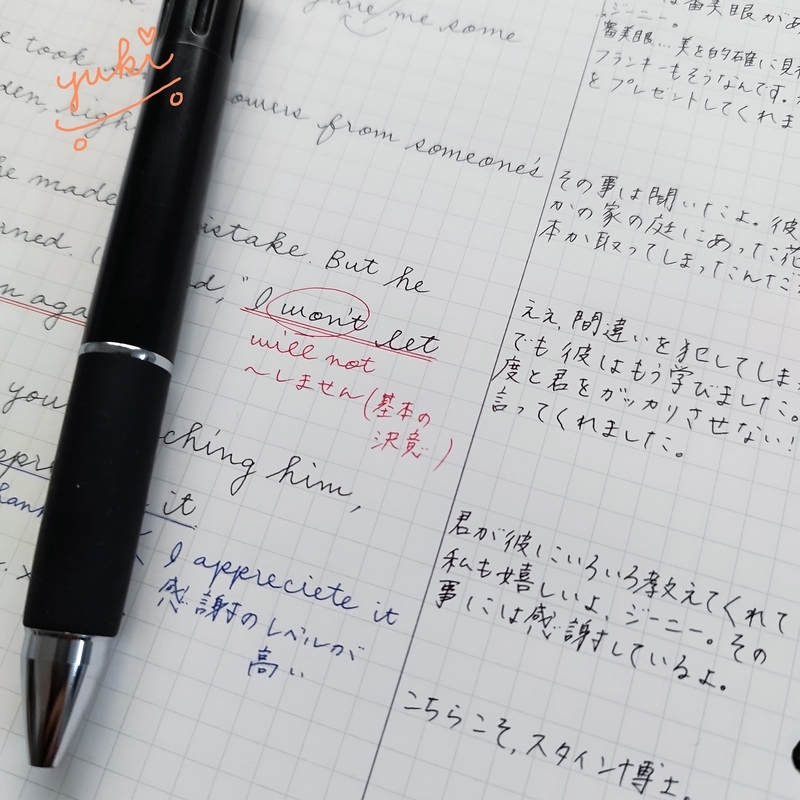 gave me some
yuki
e took
den, righ owers from someone's
he made istake. But he
rned. d, "I won't let
n aga
will not
〜しません(基本の
決意)
you ching him,
appre it
I appreciete it
感謝のレベルが
高い
審美眼があ
ジーニー。
審美眼…美を的確に見
フランキーもそうなんです。
をプレゼントしてくれま
その事は聞いたよ。彼
かの家の庭にあった花
本か取ってしまったんだ
ええ、間違いを犯してしま
でも彼はもう学びました。
度と君をガッカリさせない!
言ってくれました。
君が彼にいろいろ教えてくれて
私も嬉しいよ、ジーニー。その
事には感謝しているよ。
こちらこそ、スタイン博士。